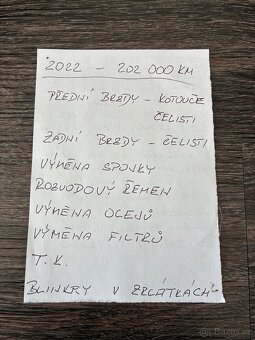 2022 - 202 000 KM
PŘEDNÍ BRZDY - KOTOUČE
ČELISTI
ZADNÍ BRZDY - ČELISTI
VÝMĚNA SPOJKY
ROZVODOVÝ ŘEMEN
VÝMĚNA OLEJŮ
VÝMĚNA FILTRŮ
T.K.
BLINKRY V ZRCÁTKÁCH